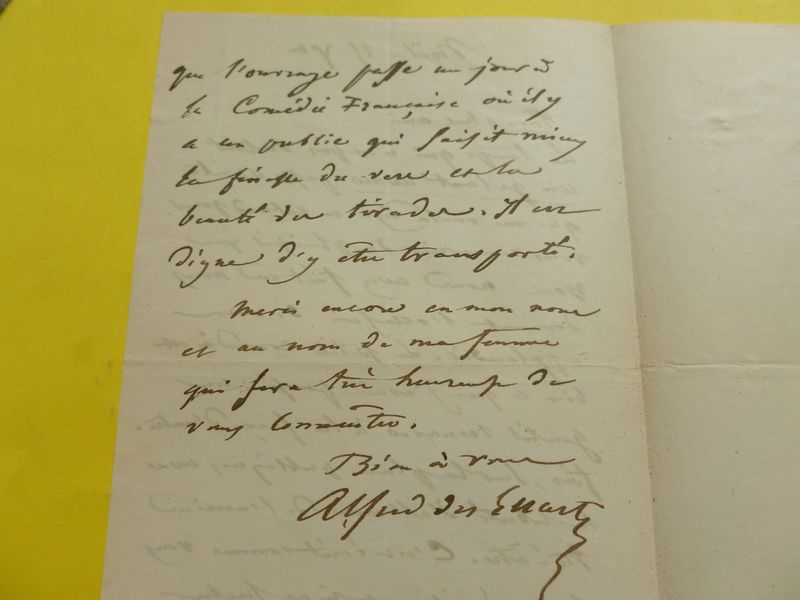 que l'ouvrage passe un jour à
la Comédie Française où il y
a un public qui saisit mieux
la finesse du vers et la
beauté des tirades. Il est
digne d'y être transporté.
Merci encore en mon nom
et au nom de ma femme
qui sera très heureuse de
vous connaître.
Bien à vous
Alfred des Essarts